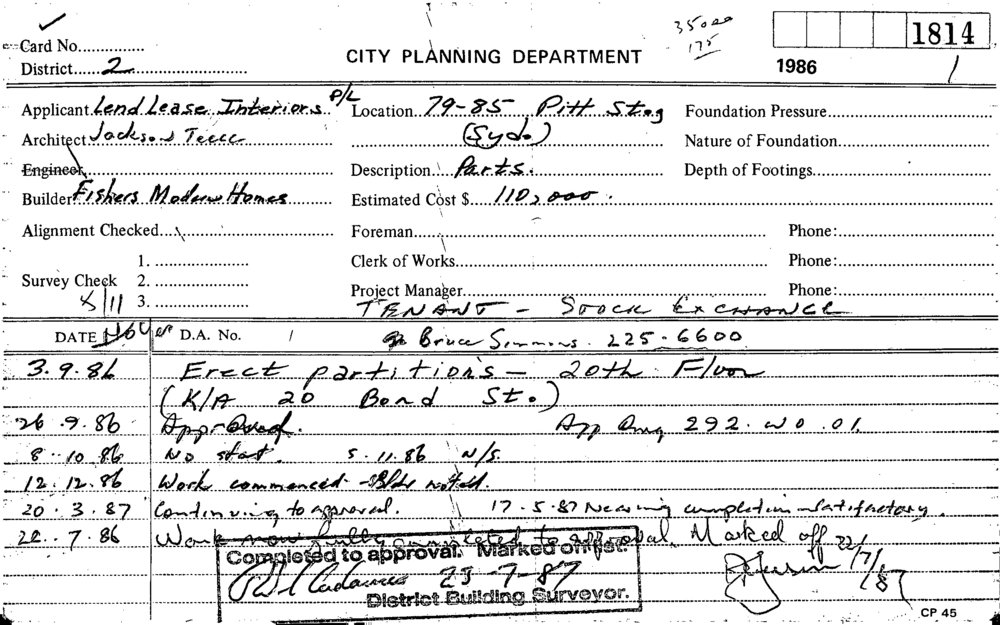 35000
175
1814
Card No.
District 2
CITY PLANNING DEPARTMENT
1986
1
Applicant Lend Lease Interiors P/L
Location 79-85 Pitt St.
Foundation Pressure
Architect Jackson Teece
(Syd.)
Nature of Foundation
Engineer
Description Parts.
Depth of Footings
Builder Fishers Modern Homes
Estimated Cost $ 110,000.
Alignment Checked
Foreman
Phone:
1.
Clerk of Works
Phone:
Survey Check 2.
3.
Project Manager
Phone:
TENANT - STOCK EXCHANGE
DATE
D.A. No. /
Bruce Simmons. 225-6600
3.9.86 Erect partitions - 20th Floor
(K/A 20 Bond St.)
26.9.86 Approved. App Dwg 292.WD.01.
8.10.86 No start. 5.11.86 N/S.
12.12.86 Work commenced - Bldr noted.
20.3.87 Continuing to approval. 17.5.87 Nearing completion satisfactory.
22.7.86 Work now fully completed to approval. Marked off
22/7/87
Completed to approval. Marked off list.
23-7-87
District Building Surveyor.
CP 45